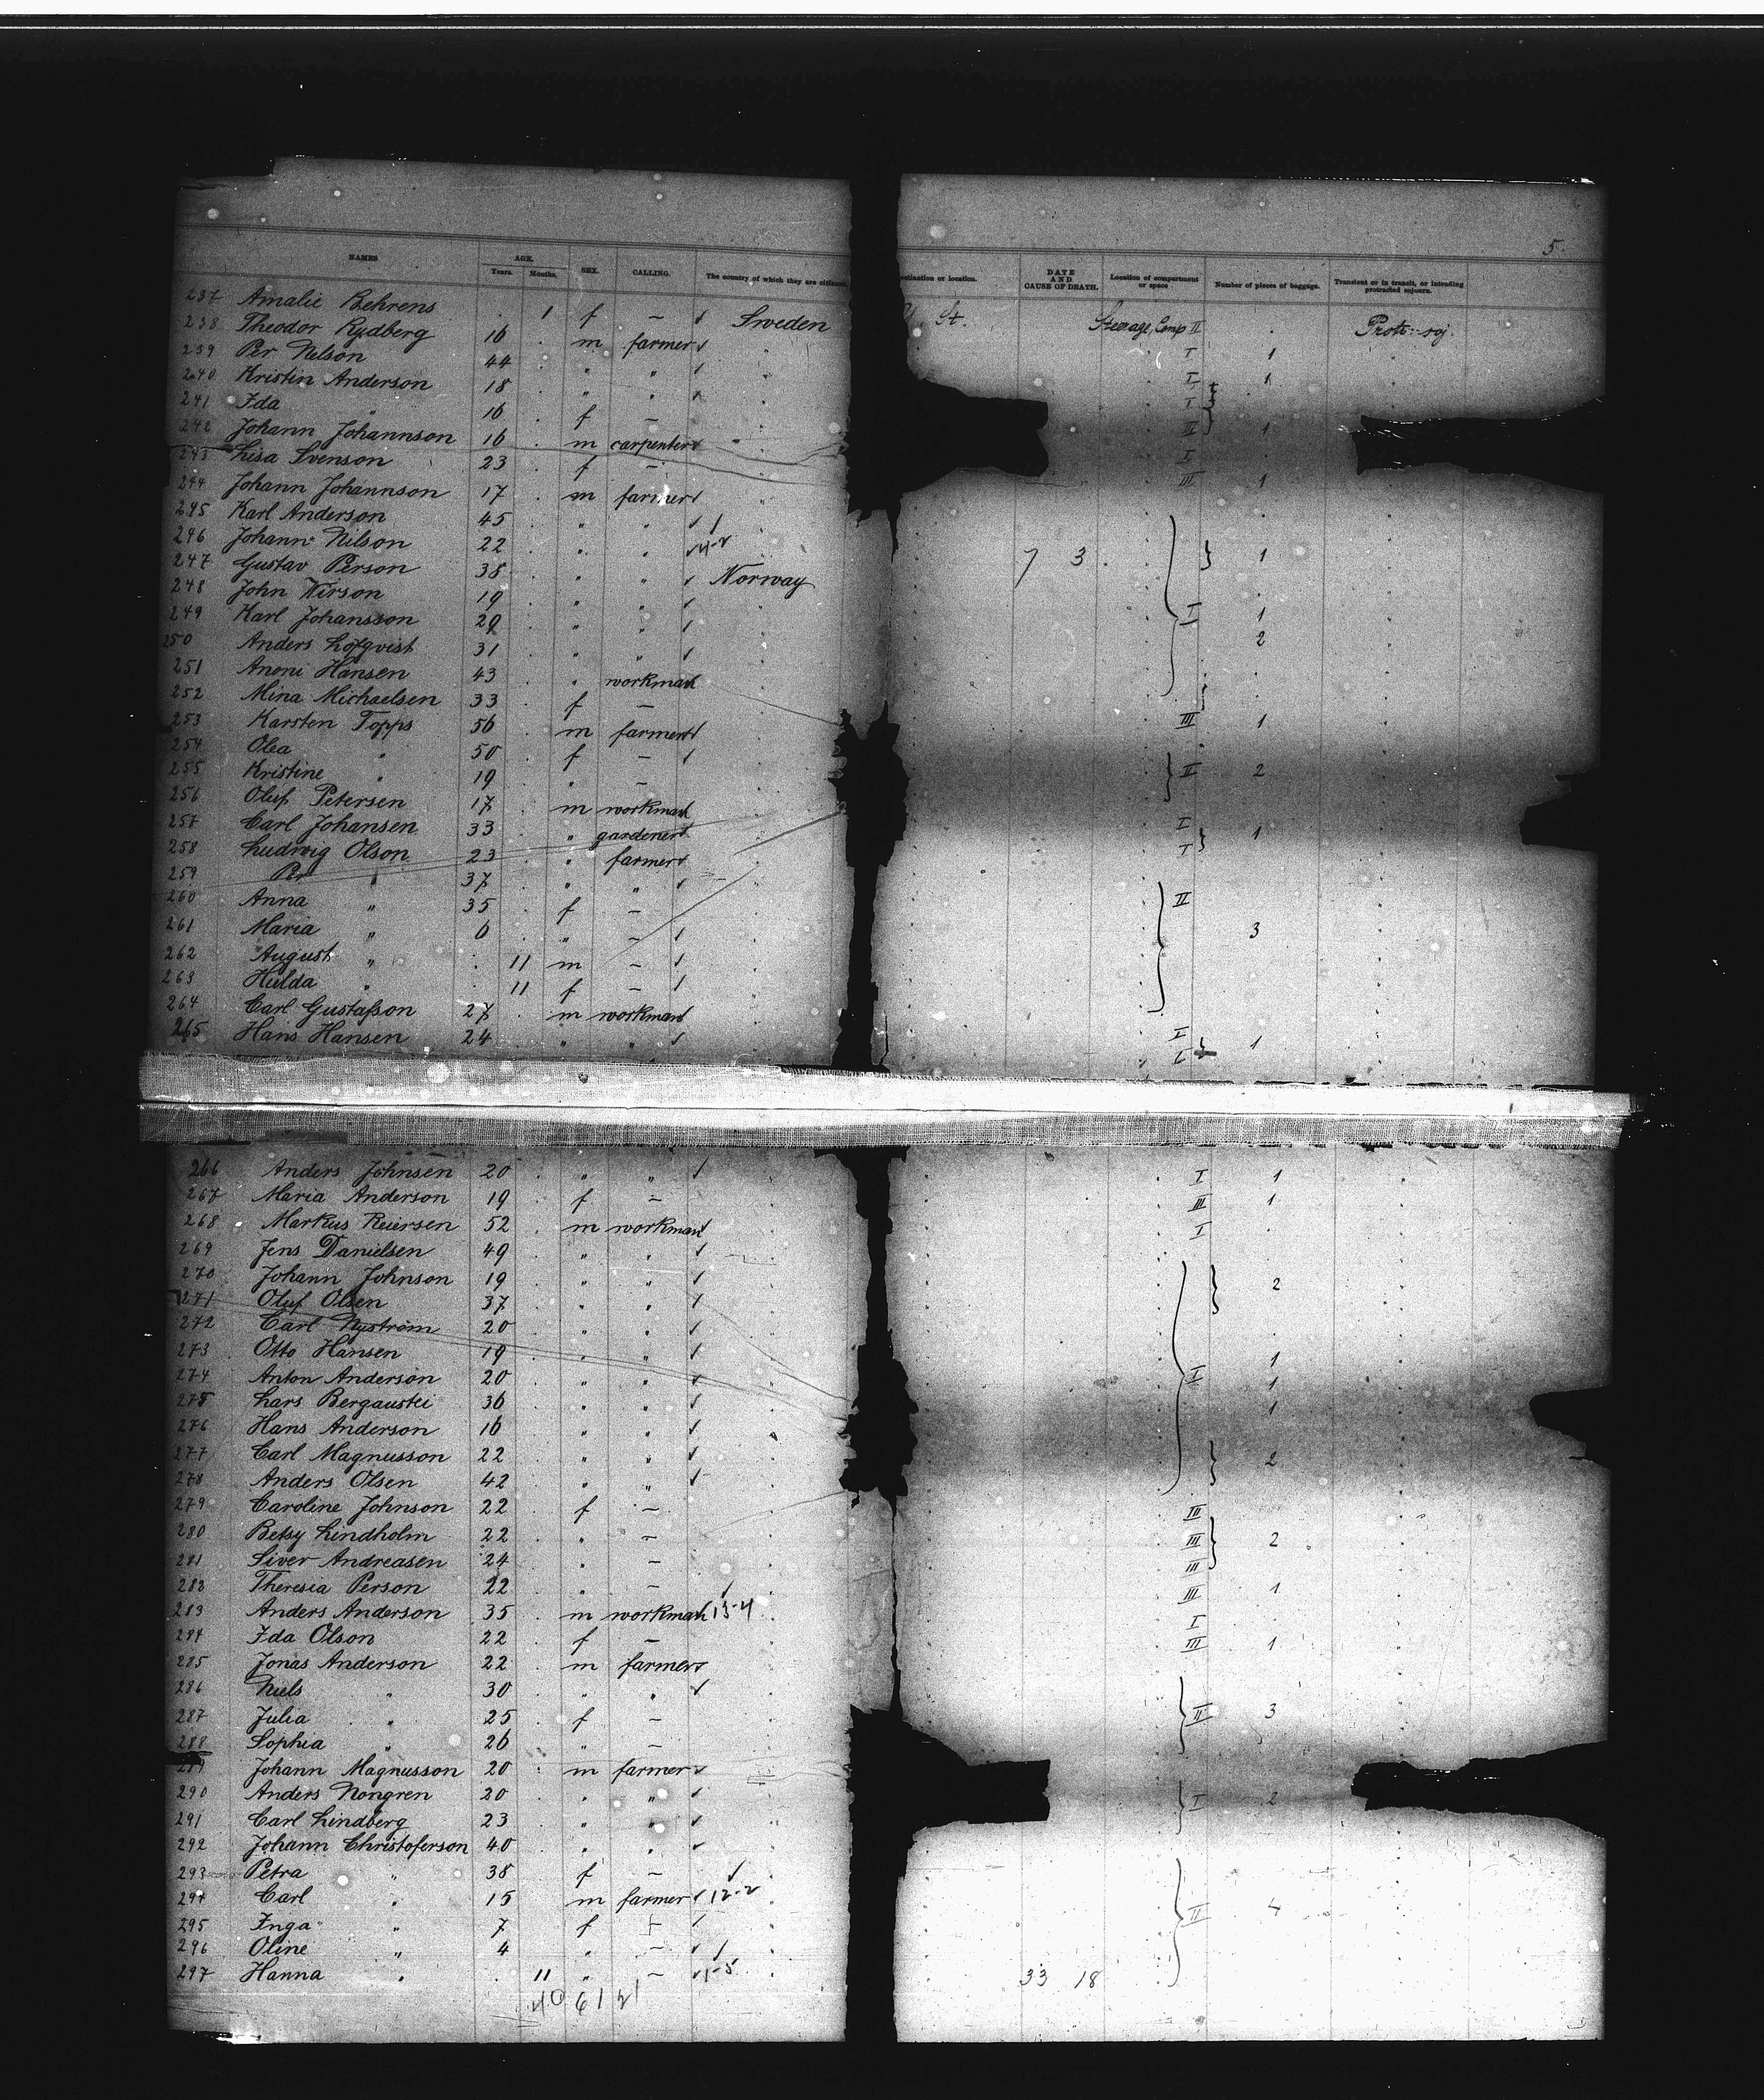 5.
NAMES AGE. SEX. CALLING. The country of which they are citizens DATE AND CAUSE OF DEATH. Location of compartment or space Number of pieces of baggage. Transient or in transit, or intending protracted sojourn.
Years. Months.
237 Amalie Behrens . 1 f — Sweden St. Steerage, Comp II . Protr. soj.
238 Theodor Rydberg 16 . m farmer " I 1
239 Per Nelson 44 . " " I 1
240 Kristin Anderson 18 . " " I
241 Ida " 16 . f — II 1
242 Johann Johannson 16 . m carpenter I
243 Lisa Svenson 23 . f — III 1
244 Johann Johannson 17 . m farmer
245 Karl Anderson 45 . " "
246 Johann Nilson 22 . " " 7 3 1
247 Gustav Person 38 . " " Norway
248 John Wirson 19 . " " I 1
249 Karl Johansson 29 . " " 2
250 Anders Löfqvist 31 . " "
251 Anoni Hansen 43 . " workman
252 Mina Michaelsen 33 . f — III 1
253 Karsten Topps 56 . m farmer
254 Olea " 50 . f — II 2
255 Kristine " 19 . " —
256 Oluf Petersen 17 . m workman I
257 Carl Johansen 33 . " gardener I 1
258 Ludwig Olson 23 . " farmer
259 Per " 37 . " " II
260 Anna " 35 . f —
261 Maria " 6 . " — 3
262 August " . 11 m —
263 Hulda " . 11 f —
264 Carl Gustafson 27 . m workman I
265 Hans Hansen 24 . " " I 1
266 Anders Johnsen 20 . " " I 1
267 Maria Anderson 19 . f — III 1
268 Markus Reiersen 52 . m workman I
269 Jens Danielsen 49 . " "
270 Johann Johnson 19 . " " 2
271 Oluf Olsen 37 . " "
272 Carl Nyström 20 . " "
273 Otto Hansen 19 . " " 1
274 Anton Anderson 20 . " " I 1
275 Lars Bergaustei 36 . " " 1
276 Hans Anderson 16 . " "
277 Carl Magnusson 22 . " " 2
278 Anders Olsen 42 . " "
279 Caroline Johnson 22 . f — III
280 Betsy Lindholm 22 . " — III 2
281 Siver Andreasen 24 . " — III
282 Theresia Person 22 . " — III 1
283 Anders Anderson 35 . m workman 15-4 I
284 Ida Olson 22 . f — III 1
285 Jonas Anderson 22 . m farmer
286 Niels " 30 . " "
287 Julia " 25 . f — II 3
288 Sophia " 26 . " —
289 Johann Magnusson 20 . m farmer
290 Anders Nongren 20 . " " I 2
291 Carl Lindberg 23 . " "
292 Johann Christoferson 40 . " "
293 Petra " 38 f —
294 Carl " 15 m farmer 12-2 II 4
295 Inga " 7 f —
296 Oline " 4 " —
297 Hanna " . 11 " — 1-5 33 18
40 61 21